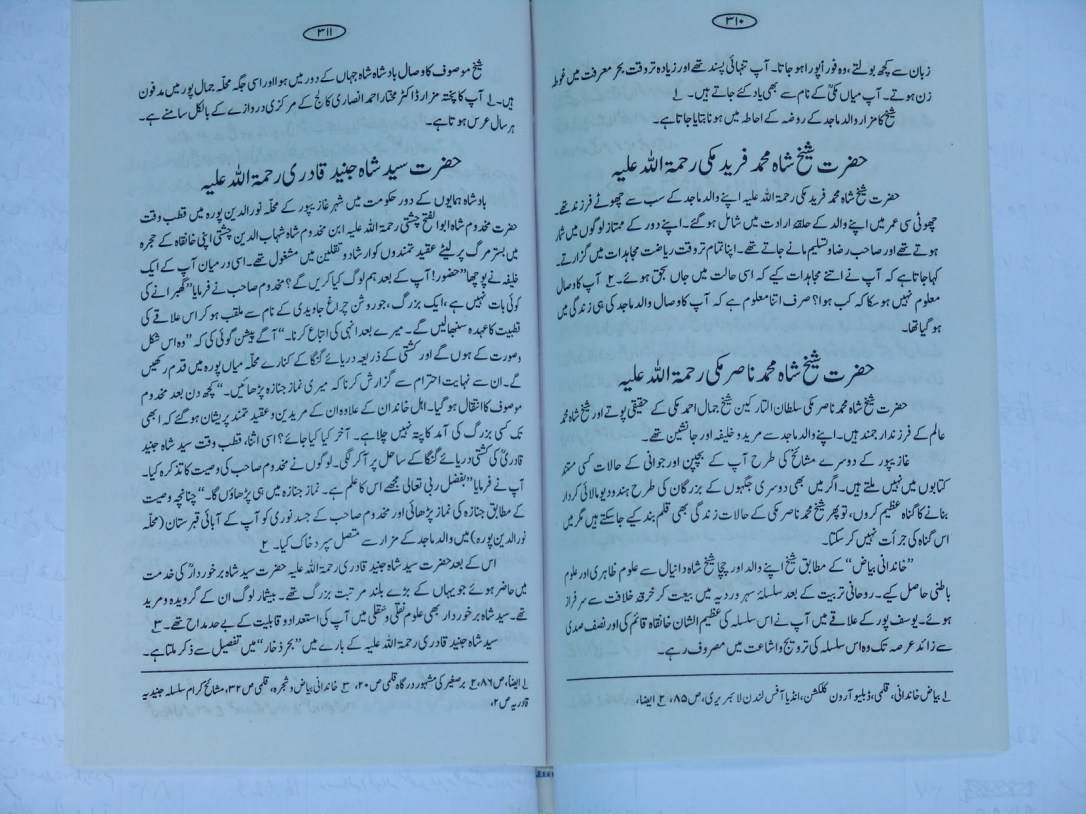 ۳۱۰
زبان سے کچھ بولتے، وہ فوراً پورا ہو جاتا۔ آپ تنہائی پسند تھے اور زیادہ تر وقت بحر معرفت میں غوطہ
زن ہوتے۔ آپ میاں مکیؒ کے نام سے بھی یاد کئے جاتے ہیں۔ ۱
شیخ کا مزار والد ماجد کے روضہ کے احاطہ میں ہونا بتایا جاتا ہے۔
حضرت شیخ شاہ محمد فرید مکی رحمۃ اللہ علیہ
حضرت شیخ شاہ محمد فرید مکی رحمۃ اللہ علیہ اپنے والد ماجد کے سب سے چھوٹے فرزند تھے۔
چھوٹی سی عمر میں اپنے والد کے حلقہ ارادت میں شامل ہو گئے۔ اپنے دور کے ممتاز لوگوں میں شمار
ہوتے تھے اور صاحب رضا و تسلیم مانے جاتے تھے۔ اپنا تمام تر وقت ریاضت مجاہدات میں گزارتے۔
کہا جاتا ہے کہ آپ نے اتنے مجاہدات کیے کہ اسی حالت میں جاں بحق ہوئے۔ ۲ آپ کا وصال
معلوم نہیں ہو سکا کہ کب ہوا؟ صرف اتنا معلوم ہے کہ آپ کا وصال والد ماجد کی ہی زندگی میں
ہو گیا تھا۔
حضرت شیخ شاہ محمد ناصر مکی رحمۃ اللہ علیہ
حضرت شیخ شاہ محمد ناصر مکی سلطان التارکین شیخ جمال احمد مکی کے حقیقی پوتے اور شیخ شاہ محمد
عالم کے فرزند ارجمند ہیں۔ اپنے والد ماجد سے مرید و خلیفہ اور جانشین تھے۔
غازیپور کے دوسرے مشائخ کی طرح آپ کے بچپن اور جوانی کے حالات کسی مستند
کتابوں میں نہیں ملتے ہیں۔ اگر میں بھی دوسری جگہوں کے بزرگان کی طرح ہندو دیومالائی کردار
بنانے کا گناہ عظیم کروں، تو پھر شیخ محمد ناصر مکی کے حالات زندگی بھی قلم بند کیے جا سکتے ہیں مگر میں
اس گناہ کی جرأت نہیں کر سکتا۔
”خاندانی بیاض“ کے مطابق شیخ اپنے والد اور چچا شیخ شاہ دانیال سے علوم ظاہری اور علوم
باطنی حاصل کیے۔ روحانی تربیت کے بعد سلسلۂ سہروردیہ میں بیعت کر خرقۂ خلافت سے سرفراز
ہوئے۔ یوسف پور کے علاقے میں آپ نے اس سلسلہ کی عظیم الشان خانقاہ قائم کی اور نصف صدی
سے زائد عرصہ تک وہ اس سلسلہ کی ترویج و اشاعت میں مصروف رہے۔
۱ بیاض خاندانی، قلمی، ڈبلیو آروِن کلکشن، انڈیا آفس لندن لائبریری، ص ۸۵، ۲ ایضا،
۳۱۱
شیخ موصوف کا وصال بادشاہ شاہ جہاں کے دور میں ہوا اور اسی جگہ محلّہ جمال پور میں مدفون
ہیں۔ ۱ آپ کا پختہ مزار ڈاکٹر مختار احمد انصاری کالج کے مرکزی دروازے کے بالکل سامنے ہے۔
ہر سال عرس ہوتا ہے۔
حضرت سید شاہ جنید قادری رحمۃ اللہ علیہ
بادشاہ ہمایوں کے دور حکومت میں شہر غازیپور کے محلّہ نورالدین پورہ میں قطب وقت
حضرت مخدوم شاہ ابوالفتح چشتی رحمۃ اللہ علیہ ابن مخدوم شاہ شہاب الدین چشتی اپنی خانقاہ کے حجرہ
میں بستر مرگ پر لیٹے عقیدتمندوں کو ارشاد و تلقین میں مشغول تھے۔ اسی درمیان آپ کے ایک
خلیفہ نے پوچھا ”حضور! آپ کے بعد ہم لوگ کیا کریں گے؟ مخدوم صاحب نے فرمایا ”گھبرانے کی
کوئی بات نہیں ہے، ایک بزرگ، جو روشن چراغ جاویدی کے نام سے ملقب ہو کر اس علاقے کی
قطبیت کا عہدہ سنبھالیں گے۔ میرے بعد انہی کی اتباع کرنا۔“ آگے پیشن گوئی کی کہ ”وہ اس شکل
و صورت کے ہوں گے اور کشتی کے ذریعہ دریائے گنگا کے کنارے محلّہ میاں پورہ میں قدم رکھیں
گے۔ ان سے نہایت احترام سے گزارش کرنا کہ میری نماز جنازہ پڑھائیں۔“ کچھ دن بعد مخدوم
موصوف کا انتقال ہو گیا۔ اہل خاندان کے علاوہ ان کے مریدین و عقیدتمند پریشان ہو گئے کہ ابھی
تک کسی بزرگ کی آمد کا پتہ نہیں چلا ہے۔ آخر کیا کیا جائے؟ اسی اثنا، قطب وقت سید شاہ جنید
قادریؒ کی کشتی دریائے گنگا کے ساحل پر آ کر لگی۔ لوگوں نے مخدوم صاحب کی وصیت کا تذکرہ کیا۔
آپ نے فرمایا ”بفضل ربی تعالی مجھے اس کا علم ہے۔ نماز جنازہ میں ہی پڑھاؤں گا۔“ چنانچہ وصیت
کے مطابق جنازہ کی نماز پڑھائی اور مخدوم صاحب کے جسد نوری کو آپ کے آبائی قبرستان (محلّہ
نورالدین پورہ) میں والد ماجد کے مزار سے متصل سپرد خاک کیا۔ ۲
اس کے بعد حضرت سید شاہ جنید قادری رحمۃ اللہ علیہ حضرت سید شاہ برخوردارؒ کی خدمت
میں حاضر ہوئے جو یہاں کے بڑے بلند مرتبت بزرگ تھے۔ بیشمار لوگ ان کے گرویدہ و مرید
تھے۔ سید شاہ برخوردار بھی علوم نقلی و عقلی میں آپ کی استعداد و قابلیت کے بے حد مداح تھے۔ ۳
سید شاہ جنید قادری رحمۃ اللہ علیہ کے بارے میں ”بحر ذخار“ میں تفصیل سے ذکر ملتا ہے۔
۱ ایضا، ص ۸۶، ۲ برصغیر کی مشہور درگاہ قلمی ص ۲۰، ۳ خاندانی بیاض و شجرہ، قلمی ص ۳۲، مشائخ کرام سلسلہ جنیدیہ
قادریہ ص ۲،